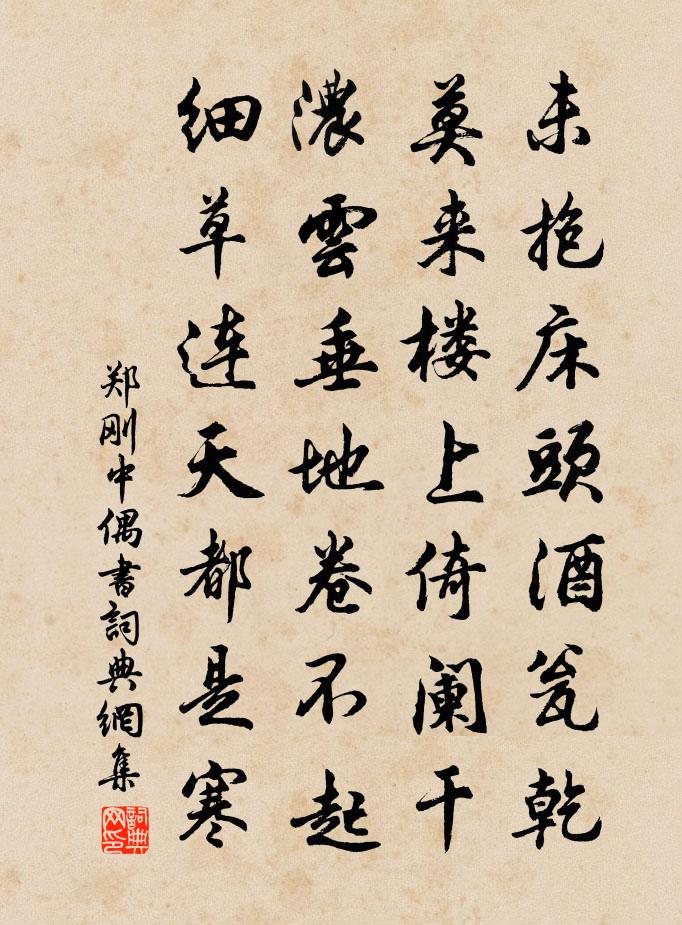 未抱床頭酒瓮乾
莫来楼上倚阑干
濃雲垂地卷不起
细草连天都是寒
郑刚中偶書詞典網集
詞典网印